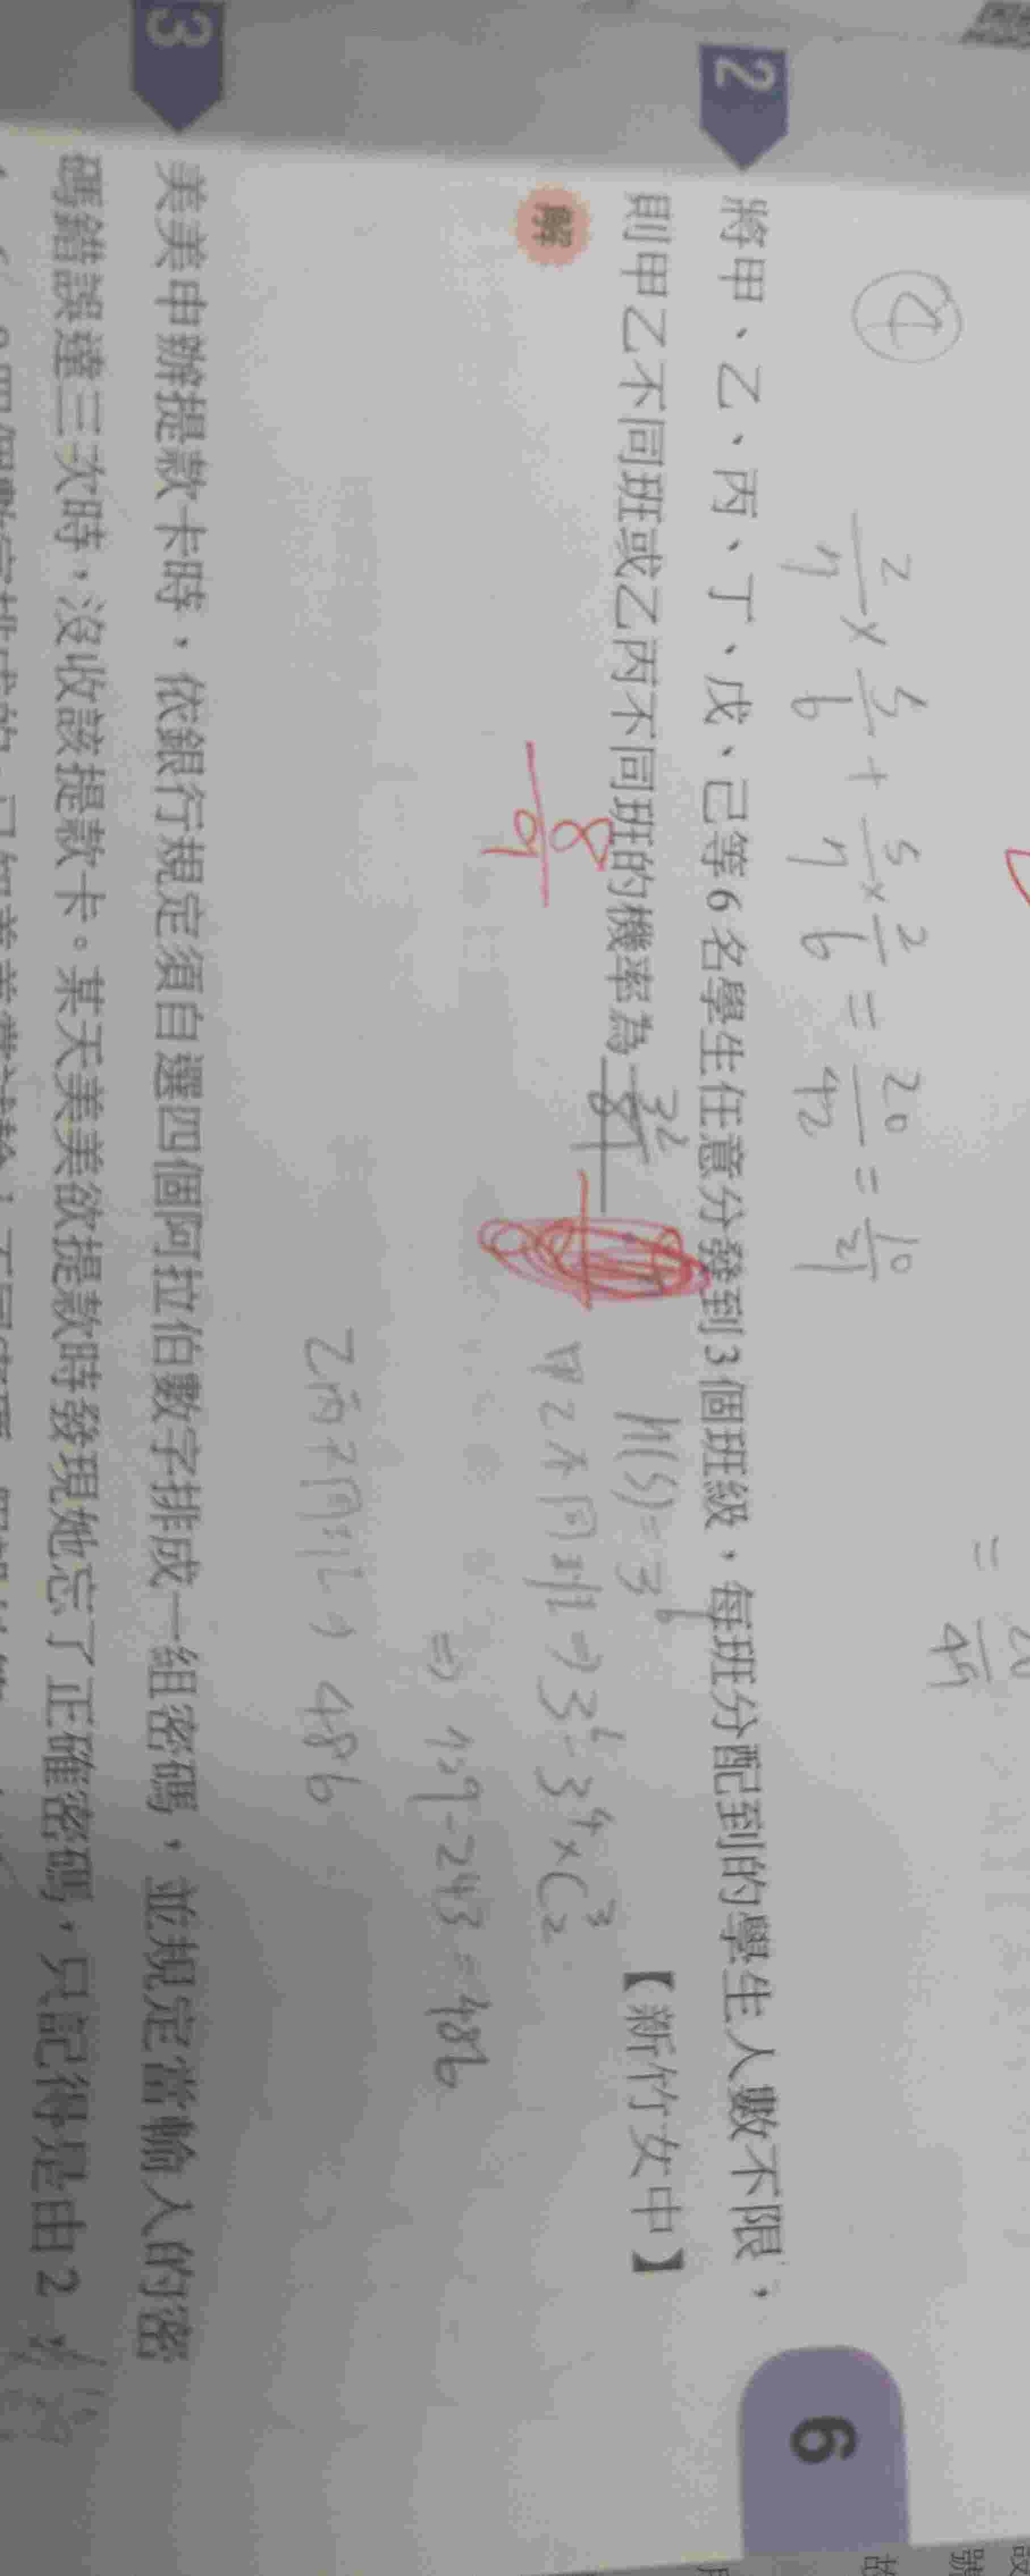 ④
2/7 × 5/6 + 5/7 × 2/6 = 20/42 = 10/21
2 將甲、乙、丙、丁、戊、己等6名學生任意分發到3個班級,每班分配到的學生人數不限,
則甲乙不同班或乙丙不同班的機率為 32/81 【新竹女中】
解
8/9
n(S)=3^6
甲乙不同班→3^6-3^4×C^3_2
⇒ 729-243=486
乙丙不同班→486
3 美美申辦提款卡時,依銀行規定須自選四個阿拉伯數字排成一組密碼,並規定當輸入的密
碼錯誤達三次時,沒收該提款卡。某天美美欲提款時發現她忘了正確密碼,只記得是由2
6